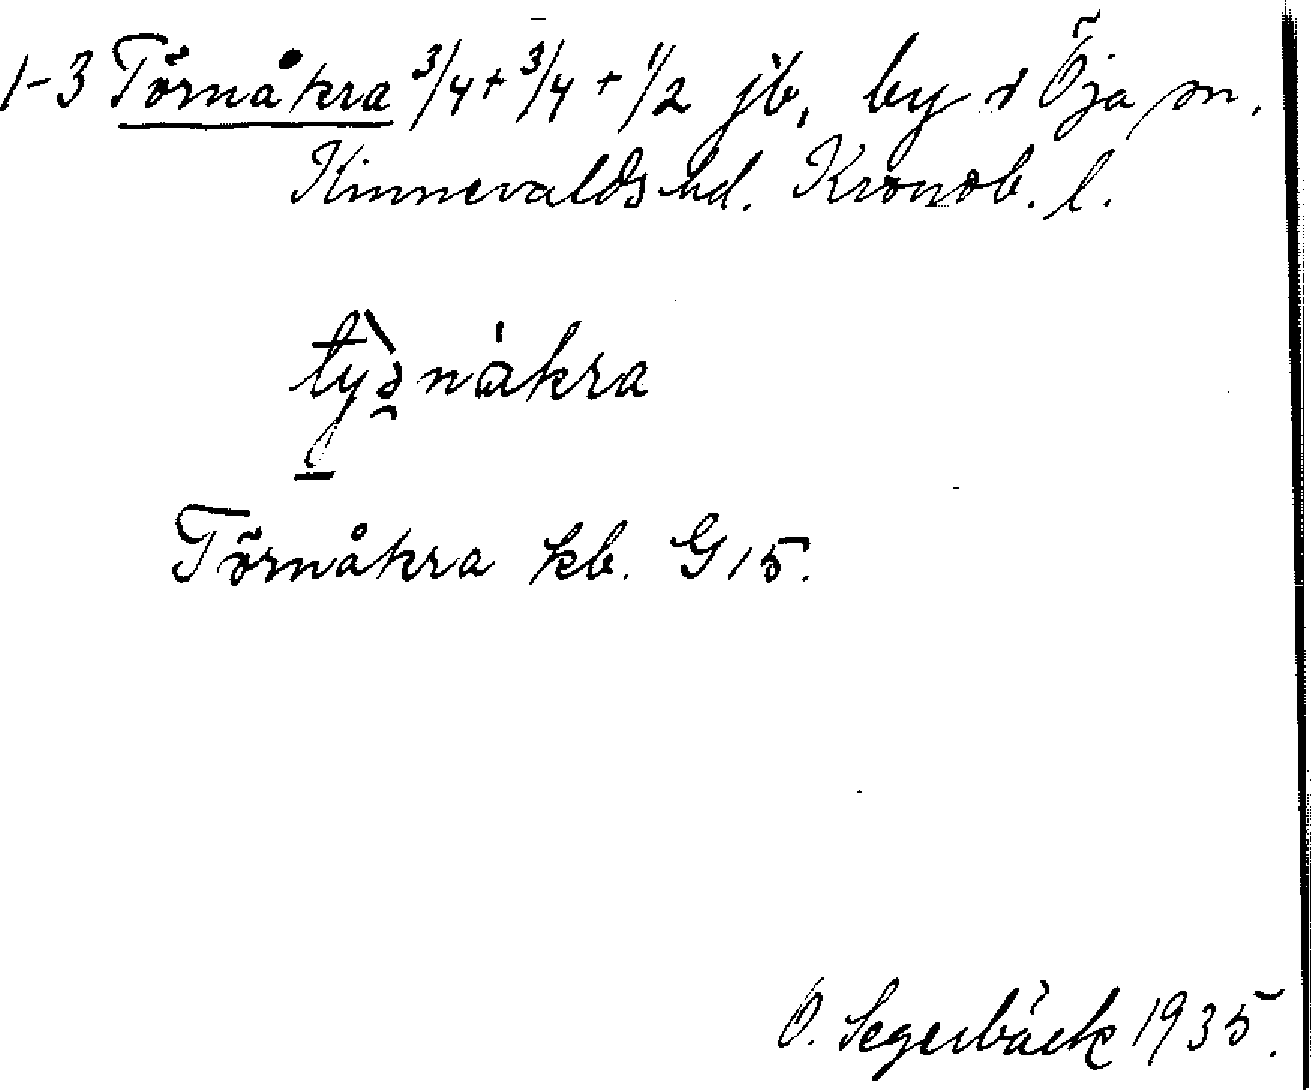 1-3 Törnåkra 3/4 + 3/4 + 1/2 jb, by i Öja sn.
Kinnevalds hd. Kronob. l.
Törnåkra kb. G15.
O. Segerbäck 1935.